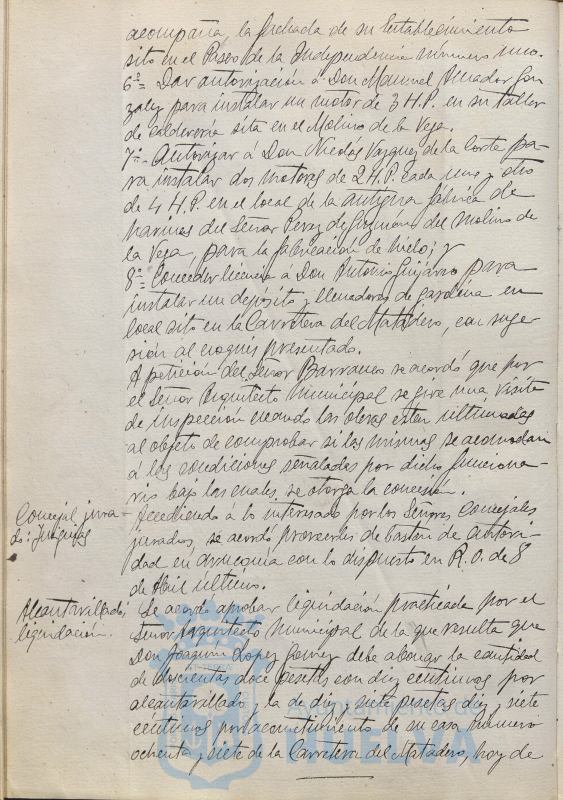 acompaña, la fachada de su Establecimiento
sito en el Paseo de la Independencia número uno.
6º = Dar autorización á Don Manuel Amador Gon
zalez para instalar un motor de 3 H.P. en su taller
de calderería sita en el Molino de la Vega.
7º - Autorizar á Don Nicolás Vazquez de la Corte pa-
ra instalar dos motores de 2 H.P. cada uno y otro
de 4 H.P. en el local de la antigua fábrica de
harinas del Señor Perez de Guzmán del Molino de
la Vega, para la fabricación de hielo; y
8º = Conceder licencia á Don Antonio Guijarro para
instalar un depósito y llenadores de gasolina en
local sito en la Carretera del Matadero, con suge
sión al croquis presentado.
A petición del Señor Barranco se acordó que por
el Señor Arquitecto Municipal se gire una visita
de inspección cuando las obras esten ultimadas
al objeto de comprobar si las mismas se acomodan
á las condiciones señaladas por dicho funciona-
rio bajo las cuales se otorga la concesión.
Concejal jura-
do: Insignias
Accediendo á lo interesado por los Señores Concejales
jurados, se acordó proveerles de bastón de autori-
dad en armonía con lo dispuesto en R.O. de 8
de Abril último.
Alcantarillado;
liquidación.
Se acordó aprobar liquidación practicada por el
Señor Arquitecto Municipal de la que resulta que
Don Joaquin Lopez Gomez debe abonar la cantidad
de doscientas doce pesetas con diez centimos por
alcantarillado y la de diez y siete pesetas diez y siete
centimos por acometimiento de su casa número
ochenta y siete de la Carretera del Matadero, hoy de
Ayuntamiento de
HUELVA